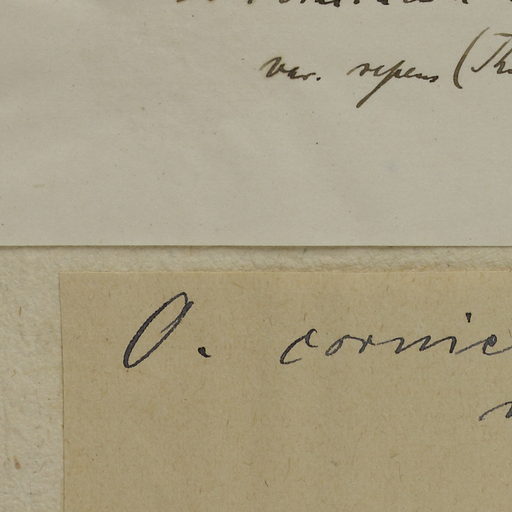 var. repens (Th
O. cornic